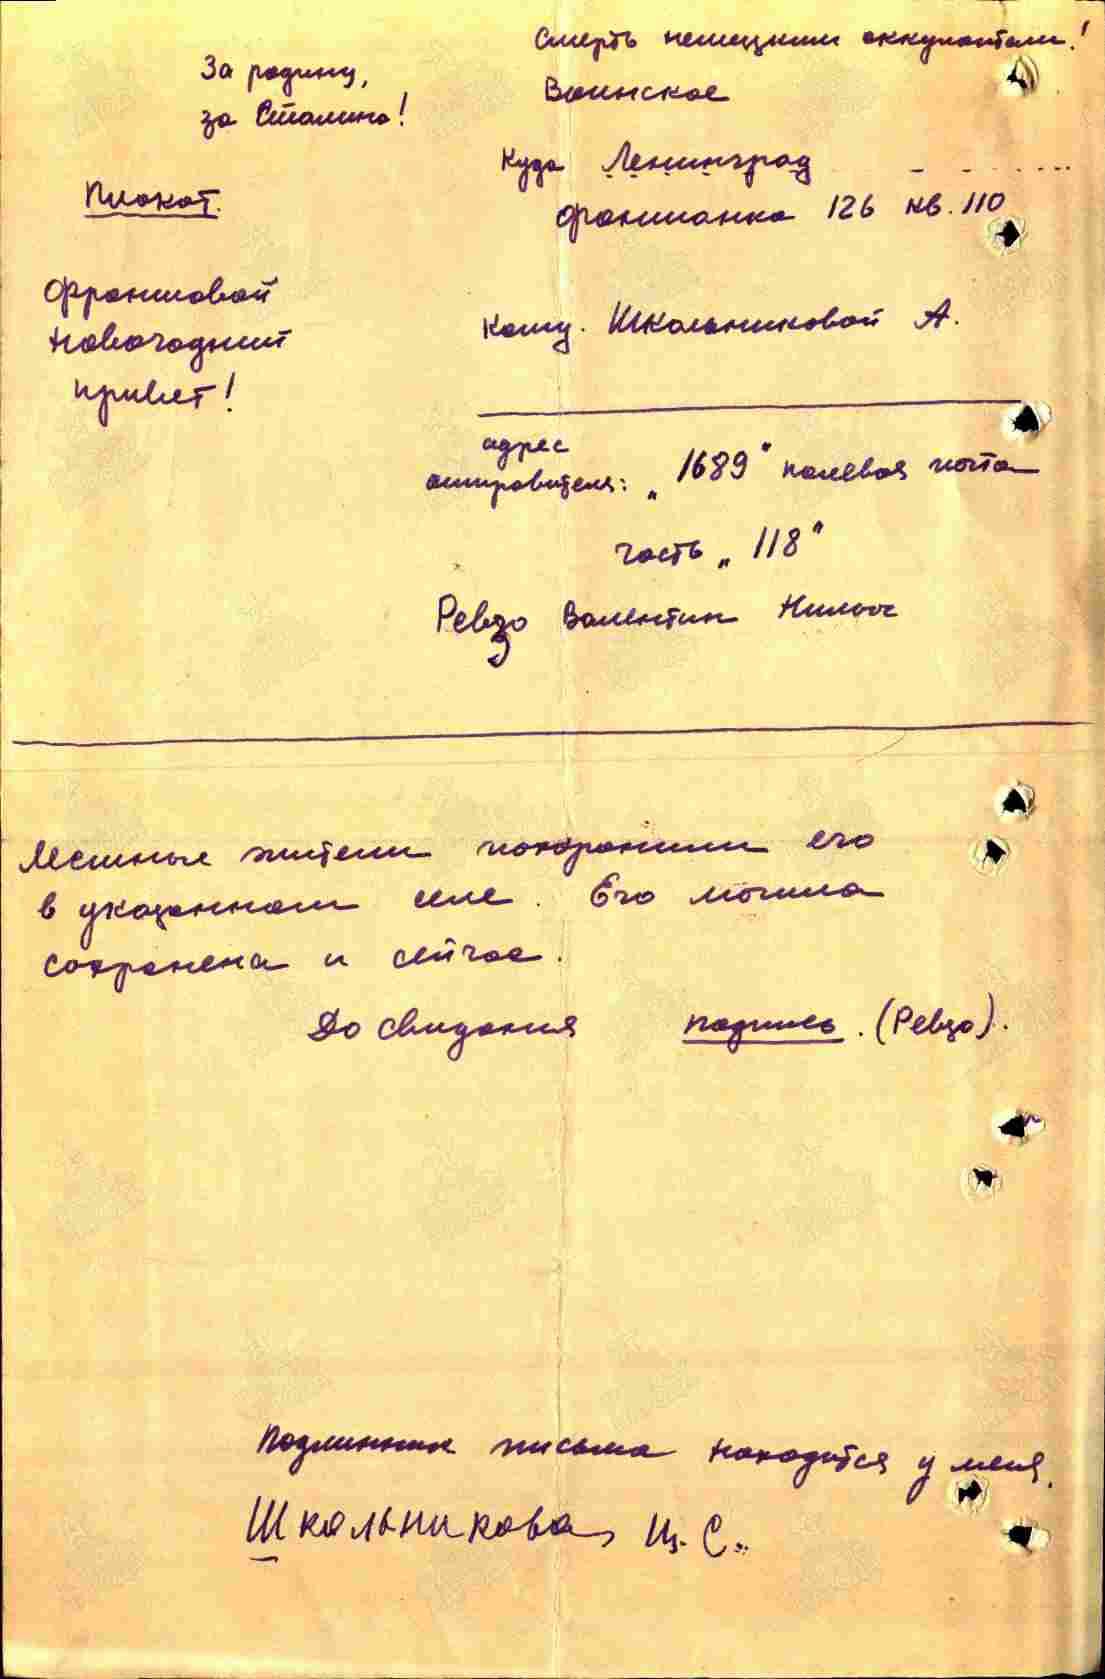 Смерть немецким оккупантам!
За родину,
за Сталина!
Воинское
Куда Ленинград
Фонтанка 126 кв. 110
Плакат.
Фронтовой
новогодний
привет!
Кому. Школьниковой А.
адрес
отправителя: „1689“ полевая почта
часть „118“
Ревзо Валентин Нилыч
Местные жители похоронили его
в указанном селе. Его могила
сохранена и сейчас.
До свидания подпись. (Ревзо).
Подлинник письма находится у меня.
Школьникова, С.